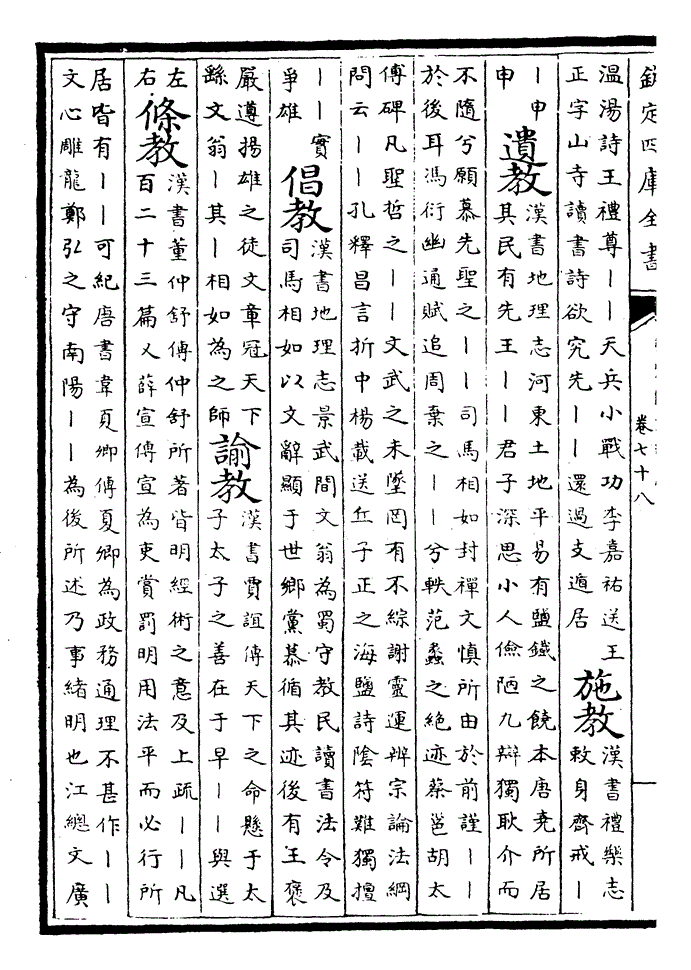 欽定四庫全書
卷七十八
温湯詩王禮尊丨丨天兵小戰功李嘉祐送王
正字山寺讀書詩欲究先丨丨還過支遁居
施教
漢書禮樂志
敕身齊戒丨
丨申
申
遺教
漢書地理志河東土地平易有鹽鐵之饒本唐堯所居
其民有先王丨丨君子深思小人儉陋九辯獨耿介而
不隨兮願慕先聖之丨丨司馬相如封禪文慎所由於前謹丨丨
於後耳馮衍幽通賦追周棄之丨丨兮軼范蠡之絶迹蔡邕胡太
傅碑凡聖哲之丨丨文武之未墜罔有不綜謝靈運辨宗論法綱
問云丨丨孔釋昌言折中楊載送丘子正之海鹽詩陰符難獨擅
丨丨實
爭雄
倡教
漢書地理志景武間文翁為蜀守教民讀書法令及
司馬相如以文辭顯于世鄉黨慕循其迹後有王褒
嚴遵揚雄之徒文章冠天下
繇文翁丨其丨相如為之師
諭教
漢書賈誼傳天下之命懸于太
子太子之善在于早丨丨與選
左
右
條教
漢書董仲舒傳仲舒所著皆明經術之意及上疏丨丨凡
百二十三篇又薛宣傳宣為吏賞罰明用法平而必行所
居皆有丨丨可紀唐書韋夏卿傳夏卿為政務通理不甚作丨丨
文心雕龍鄭弘之守南陽丨丨為後所述乃事緒明也江總文廣